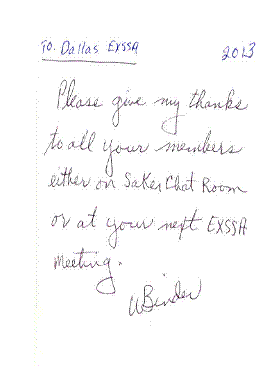 To: Dallas EXSSA
2013
Please give my thanks
to all your members
either on SaKer Chat Room
or at your next EXSSA
Meeting.
WBinder